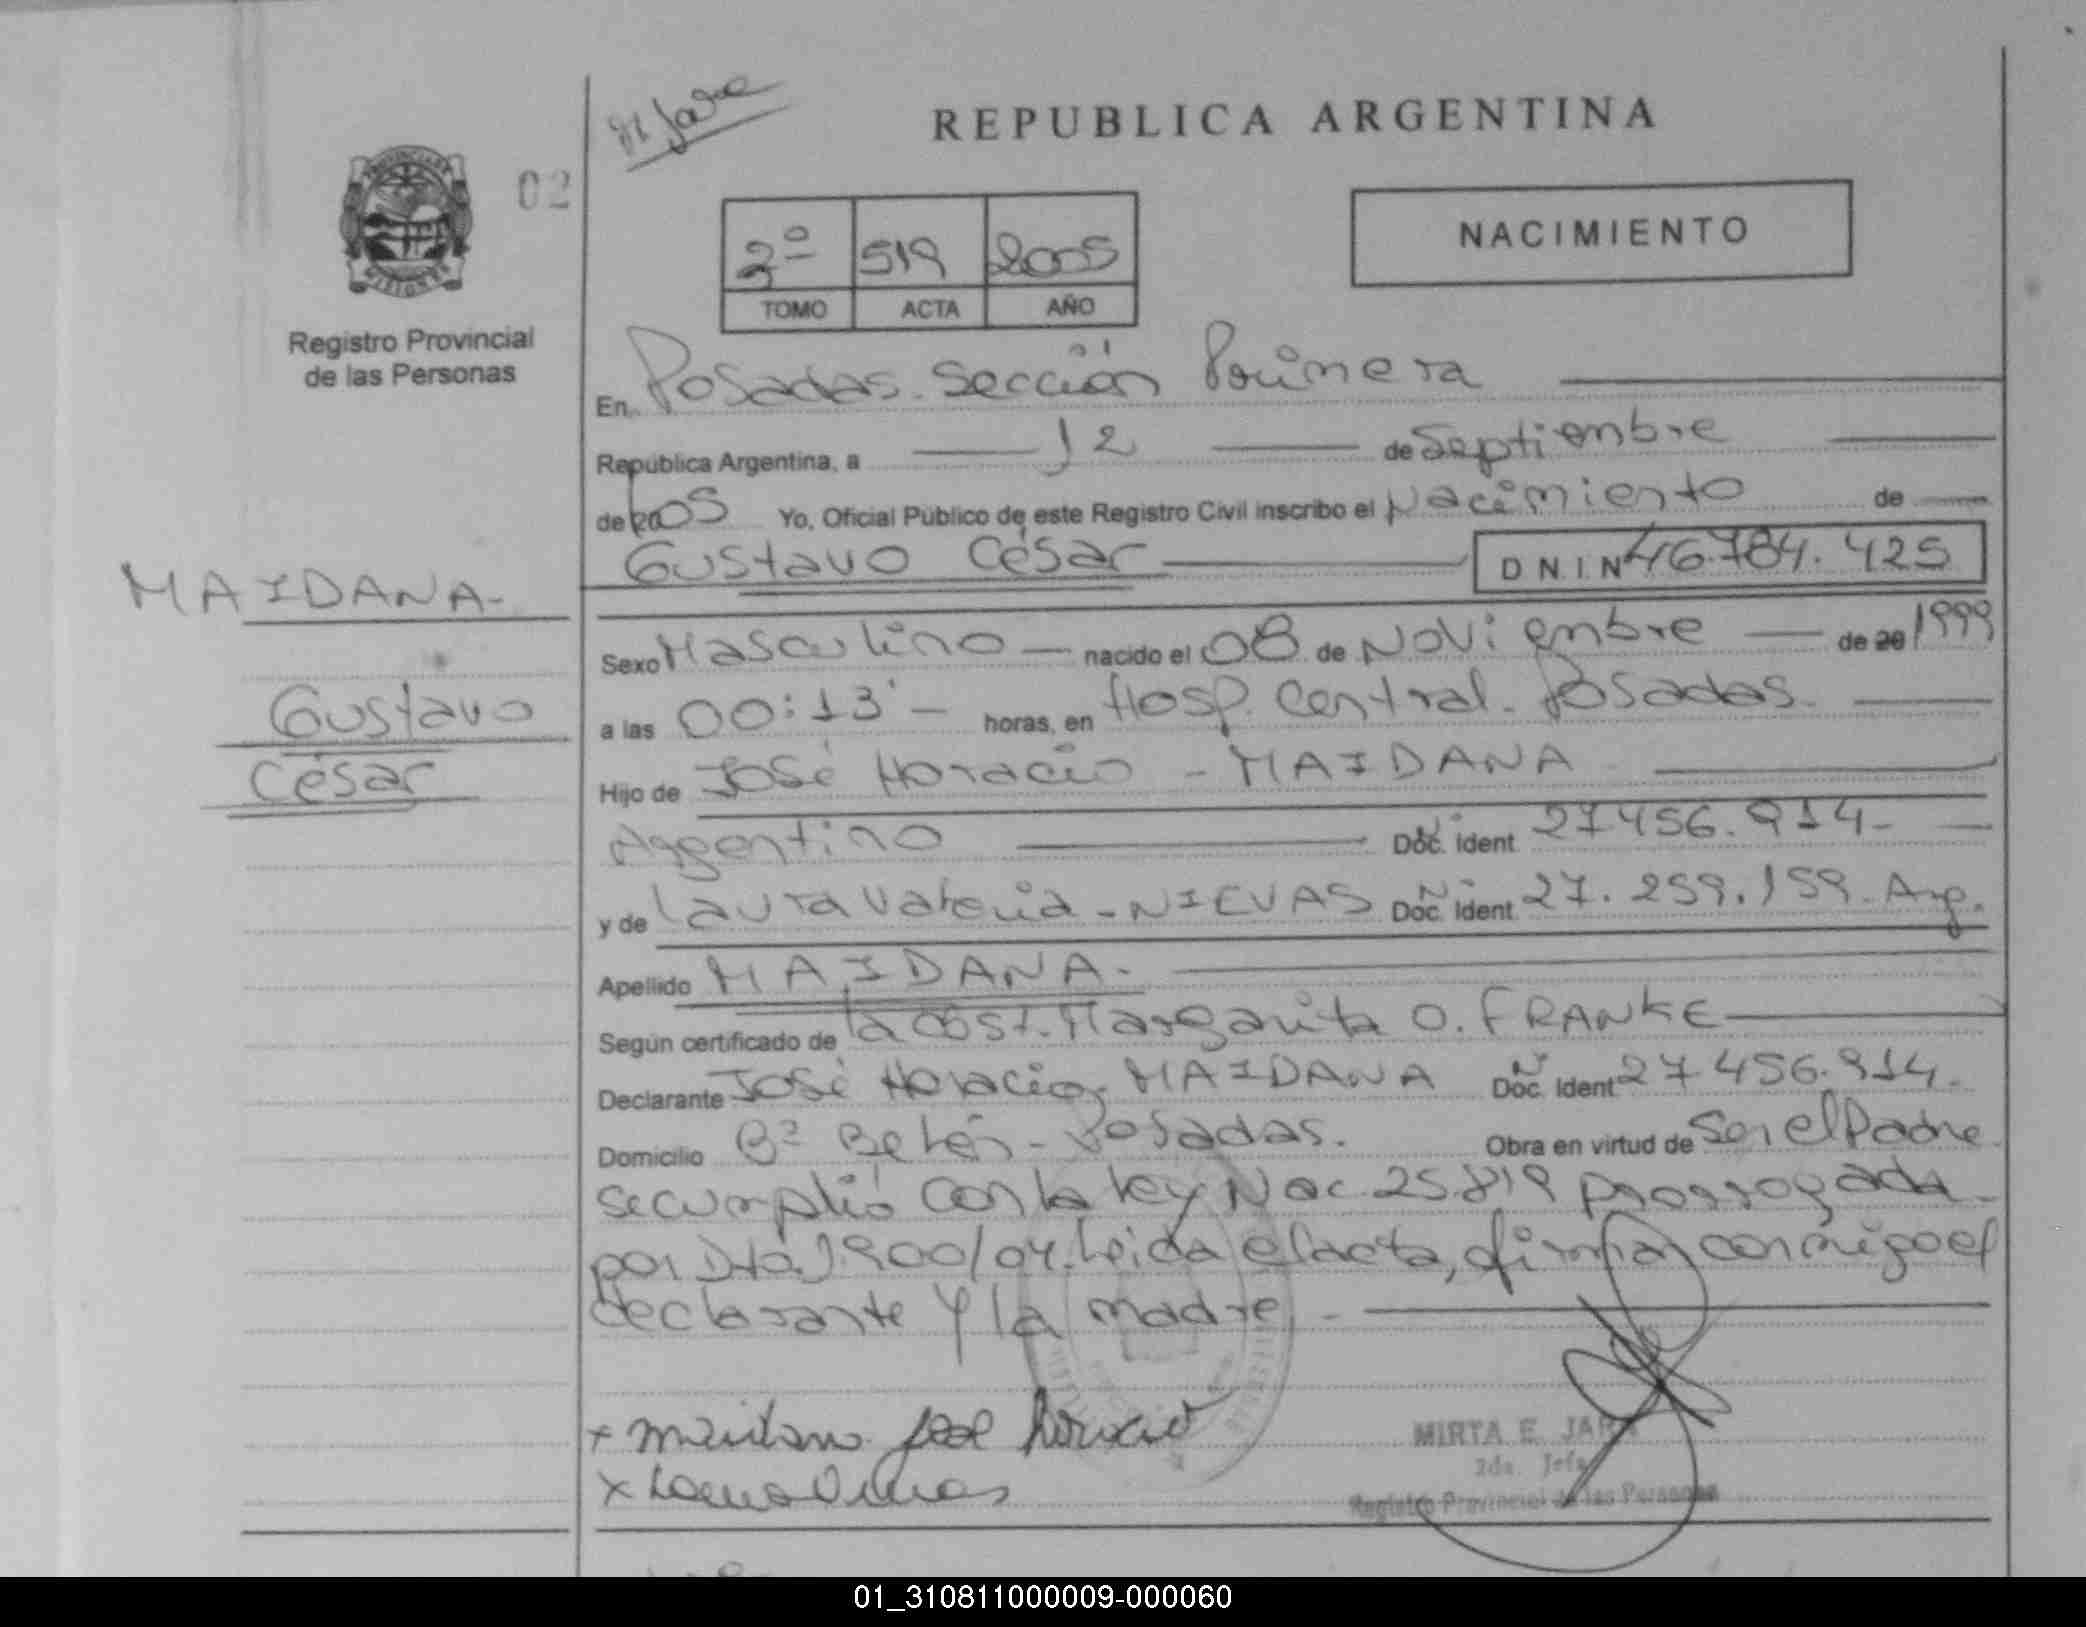 REPUBLICA ARGENTINA
02
2º 519 2005
TOMO ACTA AÑO
NACIMIENTO
Registro Provincial
de las Personas
En Posadas. Sección Primera
República Argentina, a 12 de Septiembre
de 2005 Yo, Oficial Público de este Registro Civil inscribo el Nacimiento de
Gustavo César D N I N 46.784.425
MAIDANA-
Gustavo
César
Sexo Masculino — nacido el 08 de Noviembre — de 20 1999
a las 00:13' — horas, en Hosp. Central. Posadas.
Hijo de José Horacio - MAIDANA
Argentino Doc. Ident. 27.456.914-
y de Laura Valeria - NIEVAS Doc. Ident. 27.259.159. Arg.
Apellido MAIDANA.
Según certificado de la obst. Margarita O. FRANKE
Declarante José Horacio, MAIDANA Doc. Ident. 27.456.914.
Domicilio Bº Belén - Posadas. Obra en virtud de Ser el Padre
se cumplió con la ley Nac. 25.819 prorrogada
por Dto. 1.900/04. Leida el acta, firman conmigo el
declarante y la madre. -
MIRTA E. JARA
2da. Jefa
Registro Provincial de las Personas
01_310811000009-000060